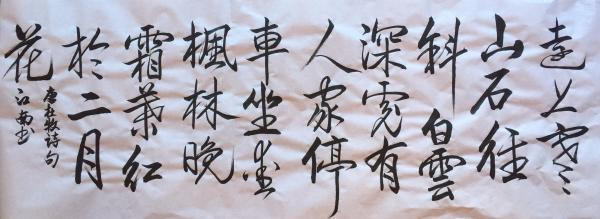 遠上寒
山石徑
斜白雲
深處有
人家停
車坐愛
楓林晚
霜葉紅
於二月
花
唐杜牧詩句
江南書